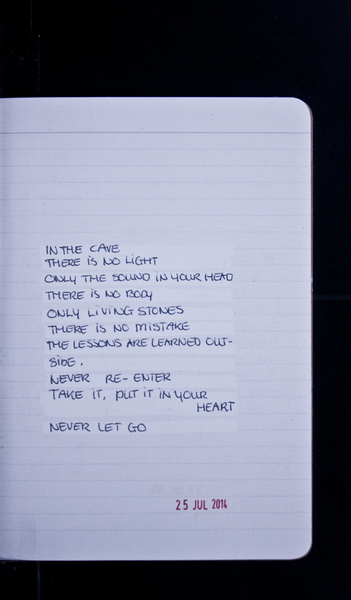 IN THE CAVE
THERE IS NO LIGHT
ONLY THE SOUND IN YOUR HEAD
THERE IS NO BODY
ONLY LIVING STONES
THERE IS NO MISTAKE
THE LESSONS ARE LEARNED OUT-
SIDE.
NEVER RE-ENTER
TAKE IT, PUT IT IN YOUR
HEART
NEVER LET GO
25 JUL 2014